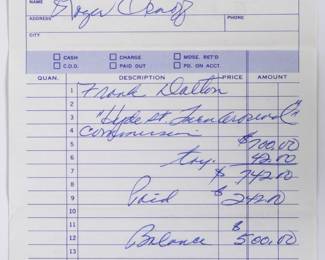 NAME Roger
ADDRESS PHONE
CITY
CASH CHARGE MDSE. RET'D
C.O.D. PAID OUT PD. ON ACCT.
QUAN. DESCRIPTION PRICE AMOUNT
1 Frank Dalton
2
3 "Hyde St. Turnaround"
4 commission
5 $700.00
6 tax 42.00
7 $ 742.00
8
9 Paid $ 242.00
10
11 $
12 Balance 500.00
13